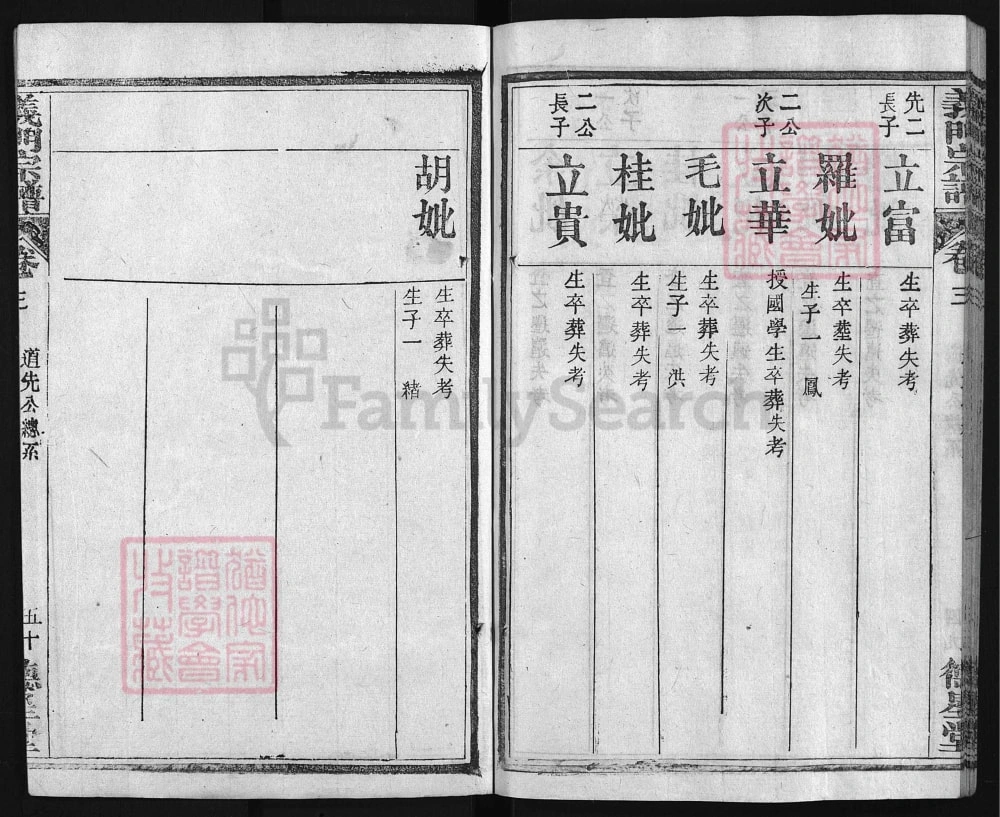 義門宗譜
卷三
德星堂
先二
長子
立富
生卒葬失考
羅妣
生卒塟失考
生子一 鳳
二公
次子
立華
授國學生卒葬失考
毛妣
生卒葬失考
生子一 洪
桂妣
生卒葬失考
二公
長子
立貴
生卒葬失考
胡妣
生卒葬失考
生子一 緒
義門宗譜
卷三
道先公總系
五十
德星堂
猶他家譜學會收藏
猶他家譜學會收藏
FamilySearch